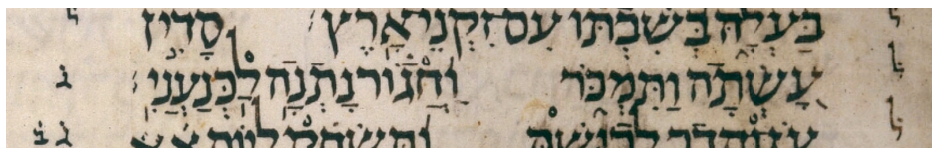 בַּעְלָהּ בְּשִׁבְתּוֹ עִם־זִקְנֵי־אָרֶץ׃ סָדִין
עָשְׂתָה וַתִּמְכֹּר וַחֲגוֹר נָתְנָה לַכְּנַעֲנִי׃
עז והדר לבושה ותשחק ליום